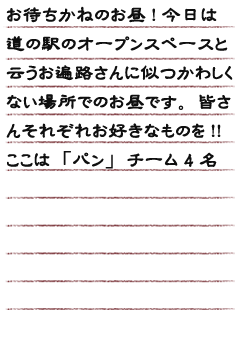 お待ちかねのお昼!今日は
道の駅のオープンスペースと
云うお遍路さんに似つかわしく
ない場所でのお昼です。皆さ
んそれぞれお好きなものを!!
ここは「パン」チーム4名